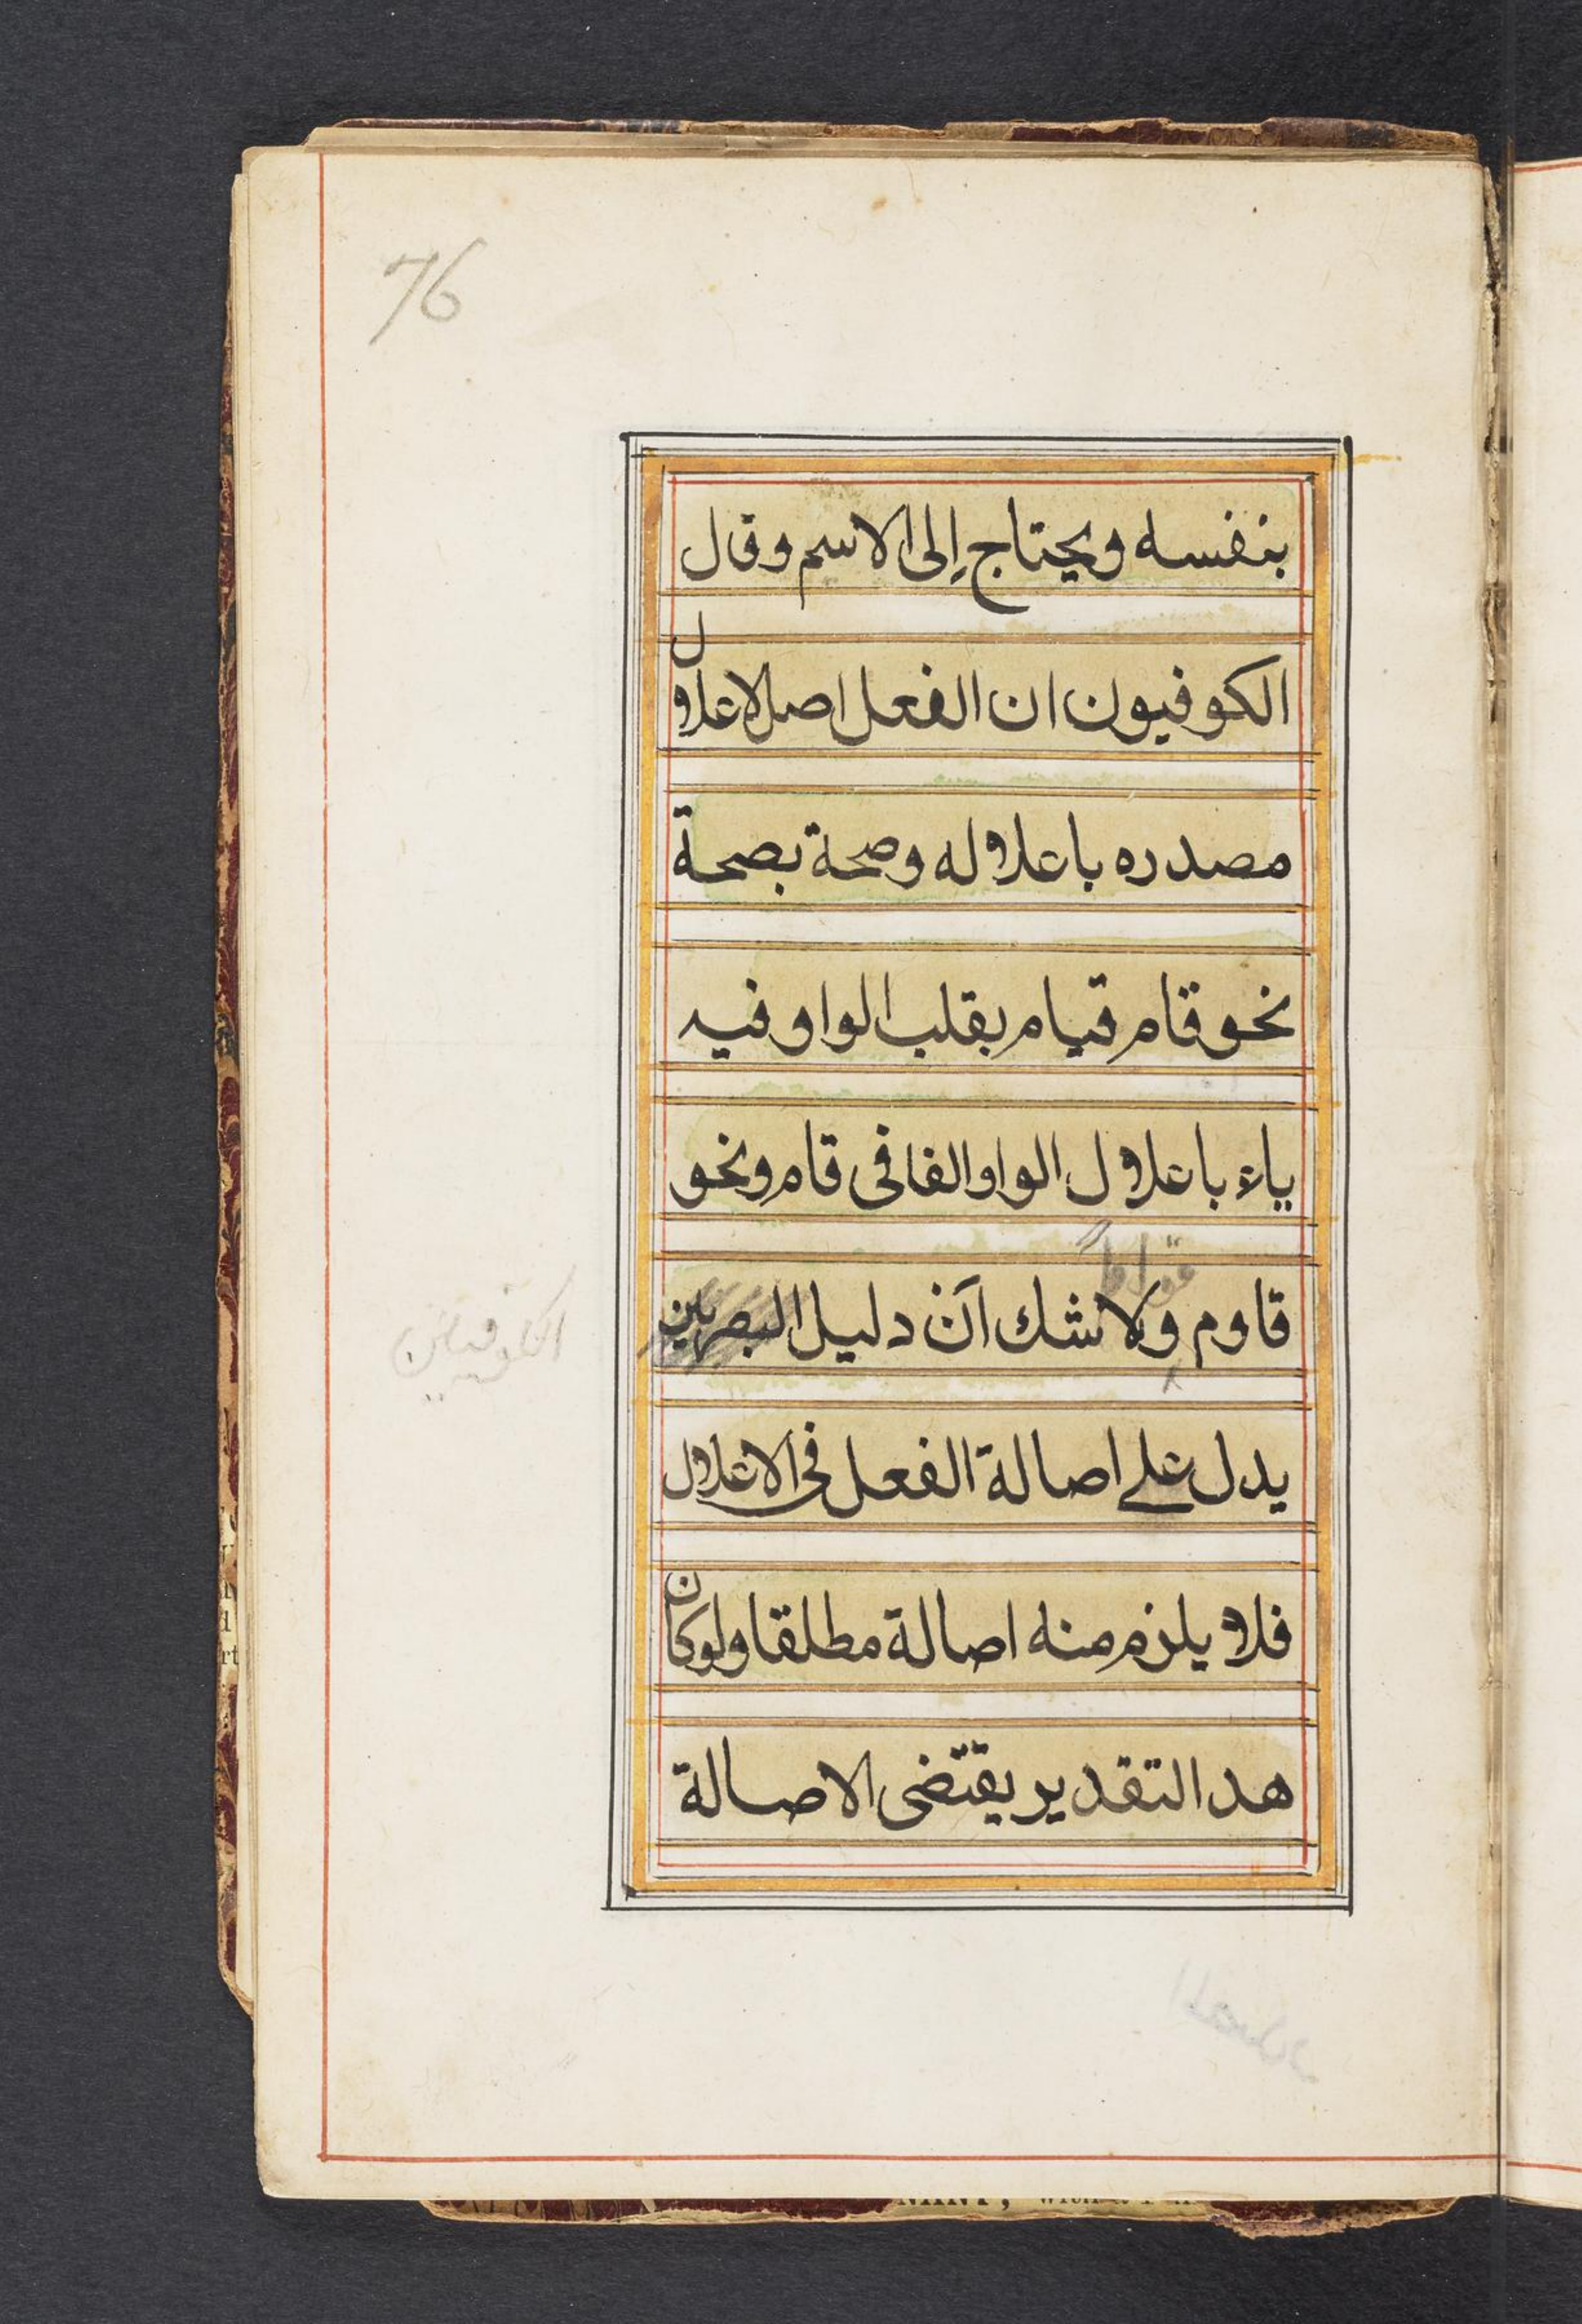 76
بنفسه ويحتاج إلى الاسم وقال
الكوفيون ان الفعل اصل لاعلال
مصدره باعلاله وصحة بصحة
نحو قام قيام بقلب الواو فيه
ياء باعلال الواو الفا فى قام ونحو
قواماً
قاوم ولا شك انّ دليل البصريين
الكوفيين
يدل على اصالة الفعل فى الاعلال
فلا يلزم منه اصالة مطلقا ولوكان
هدا التقدير يقتضى الاصالة
المصدر